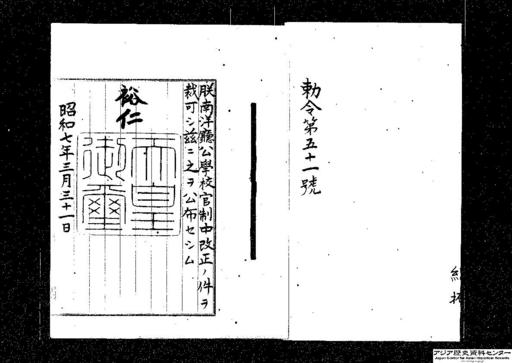 勅令第五十一號
朕南洋廳公學校官制中改正ノ件ヲ
裁可シ茲ニ之ヲ公布セシム
裕仁
天皇
御璽
昭和七年三月三十一日
アジア歴史資料センター
Japan Center for Asian Historical Records